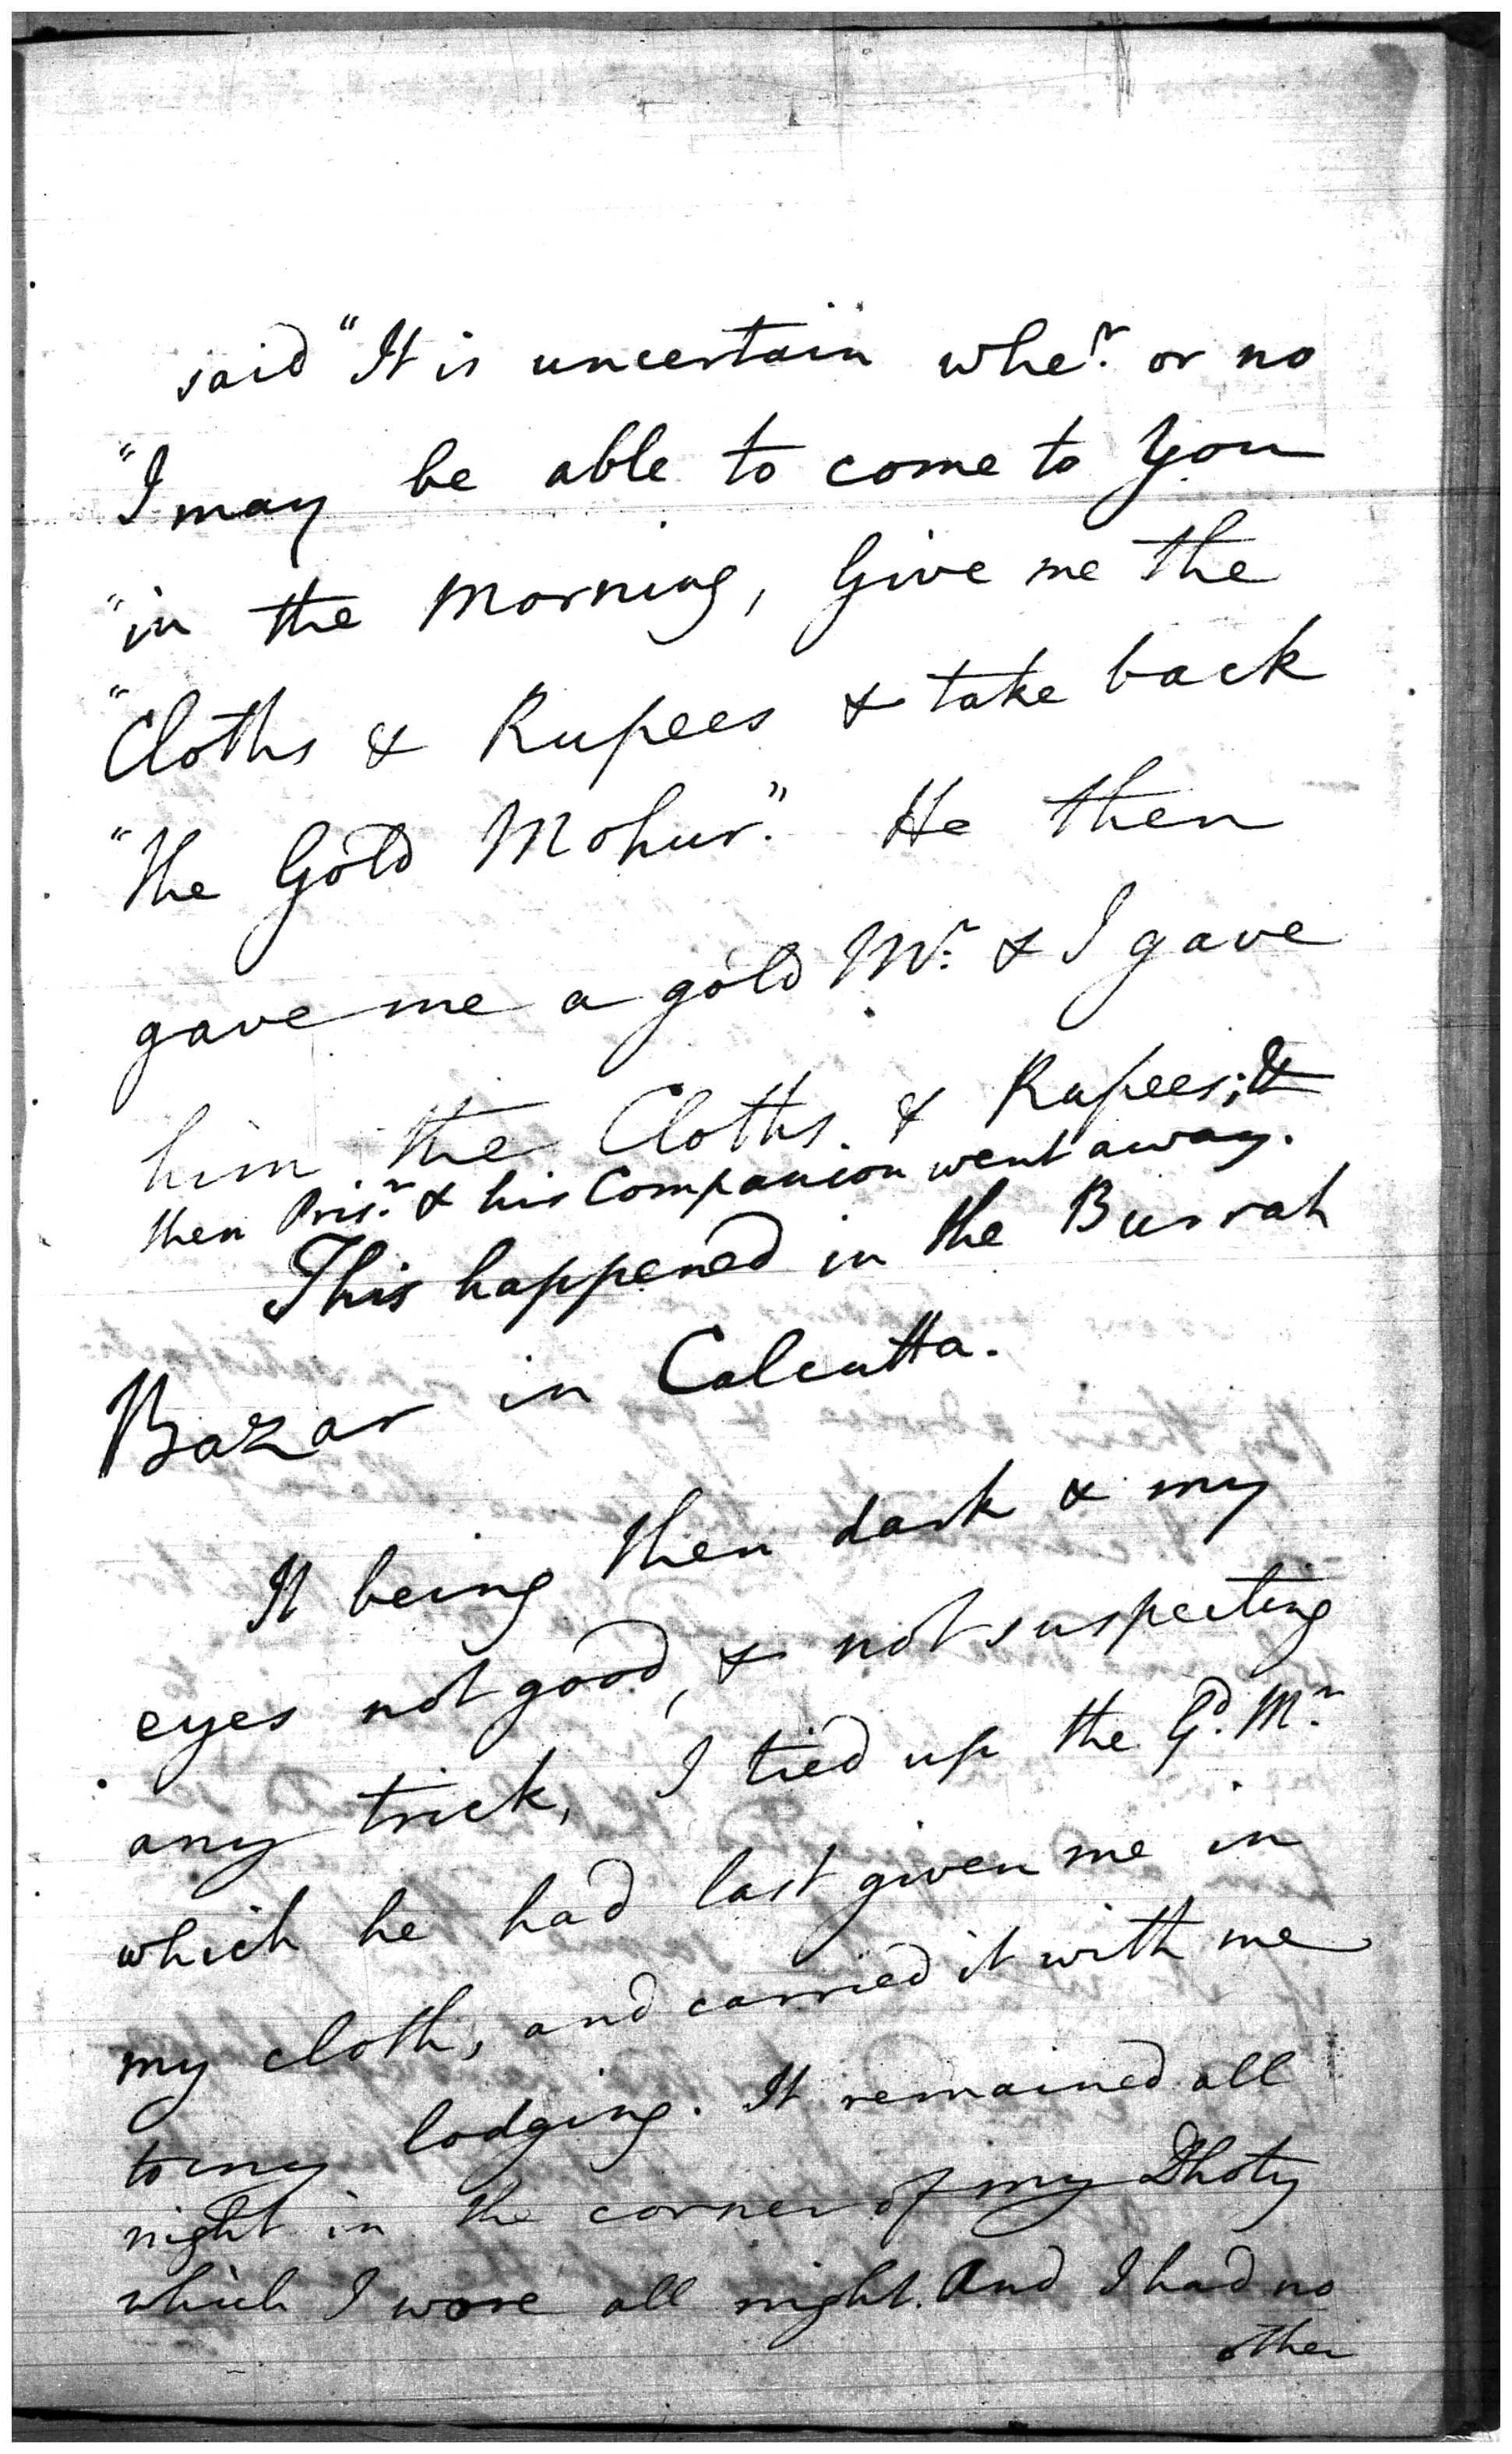 said "It is uncertain whe.r or no
"I may be able to come to you
"in the morning, Give me the
"Cloths & Rupees & take back
"the Gold Mohur." He then
gave me a gold M.r & I gave
him the Cloths & Rupees; &
then Pris.r & his Companion went away.
This happened in the Burrah
Bazar in Calcutta.
It being then dark & my
eyes not good, & not suspecting
any trick, I tied up the G.d M.r
which he had last given me in
my cloth, and carried it with me
to my lodging. It remained all
night in the corner of my Dhoty
which I wore all night. And I had no
other